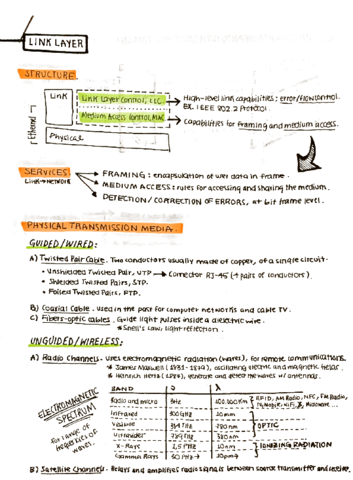 LINK LAYER
STRUCTURE
Link
Link Layer Control, LLC
Medium Access Control, MAC
Physical
Ethernet
High-level link capabilities; error/flow control.
Ex. IEEE 802.2 Protocol
Capabilities for framing and medium access.
SERVICES
Link → Network
FRAMING: encapsulation of user data in frame.
MEDIUM ACCESS: rules for accessing and sharing the medium.
DETECTION/CORRECTION OF ERRORS, at bit frame level.
PHYSICAL TRANSMISSION MEDIA.
GUIDED/WIRED:
A) Twisted Pair Cable. Two conductors usually made of copper, of a single circuit.
• Unshielded Twisted Pair, UTP → Connector RJ-45 (4 pairs of conductors).
• Shielded Twisted Pairs, STP.
• Foiled Twisted Pairs, FTP.
B) Coaxial Cable. Used in the past for computer networks and cable TV.
C) Fibers-optic cables. Guide light pulses inside a dielectric wire.
* Snell's Law, light reflections.
UNGUIDED/WIRELESS:
A) Radio Channels. Uses electromagnetic radiation (waves), for remote communications.
* James Maxwell, oscillating electric and magnetic fields.
* Heinrich Hertz, generate and detect the waves w/ antennas.
ELECTROMAGNETIC SPECTRUM
Full range of frequencies of waves.
BAND λ
Radio and micro 3Hz 100.000Km RFID, AM Radio, NFC, FM Radio,
Infrared 300 GHz
Visible 780 nm OPTIC
Ultraviolet 380 nm
X-Rays 10nm IONIZING RADIATION
Gamma Rays
B) Satellite Channels. Relays and amplifies radio signals between source transmitter and receiver.